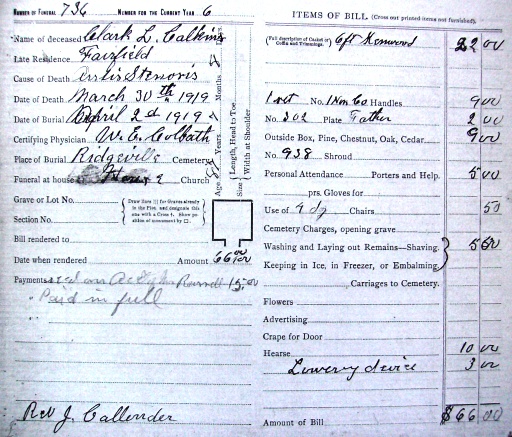 NUMBER OF FUNERAL 736 NUMBER FOR THE CURRENT YEAR 6
Name of deceased Clark L. Calkins
Late Residence Fairfield
Cause of Death
Date of Death March 30th 1919
Date of Burial April 2d 1919
Certifying Physician W. E. Colbath
Place of Burial Ridgeville Cemetery
Funeral at house Church
Age Years Months Days
Size Length, Head to Toe
Width at Shoulder
Grave or Lot No.
Section No.
Draw lines for Graves already in the Plot, and designate this one with a Cross †. Show position of monument by □.
Bill rendered to
Date when rendered Amount 66 00
Payments 15.00
" Paid in full
Rev J. Callender
ITEMS OF BILL (Cross out printed items not furnished).
(Full description of Casket or Coffin and Trimmings. 6ft Kenwood 22 00
1 set No. 1 Non Co Handles 9 00
No. 302 Plate Father 2 00
Outside Box, Pine, Chestnut, Oak, Cedar 9 00
No. 938 Shroud
Personal Attendance Porters and Help. 5 00
prs. Gloves for
Use of 4 dz Chairs 50
Cemetery Charges, opening grave
Washing and Laying out Remains—Shaving.
Keeping in Ice, in Freezer, or Embalming 5 50
Carriages to Cemetery.
Flowers
Advertising
Crape for Door
Hearse 10 00
Lowery device 3 00
Amount of Bill $66 00